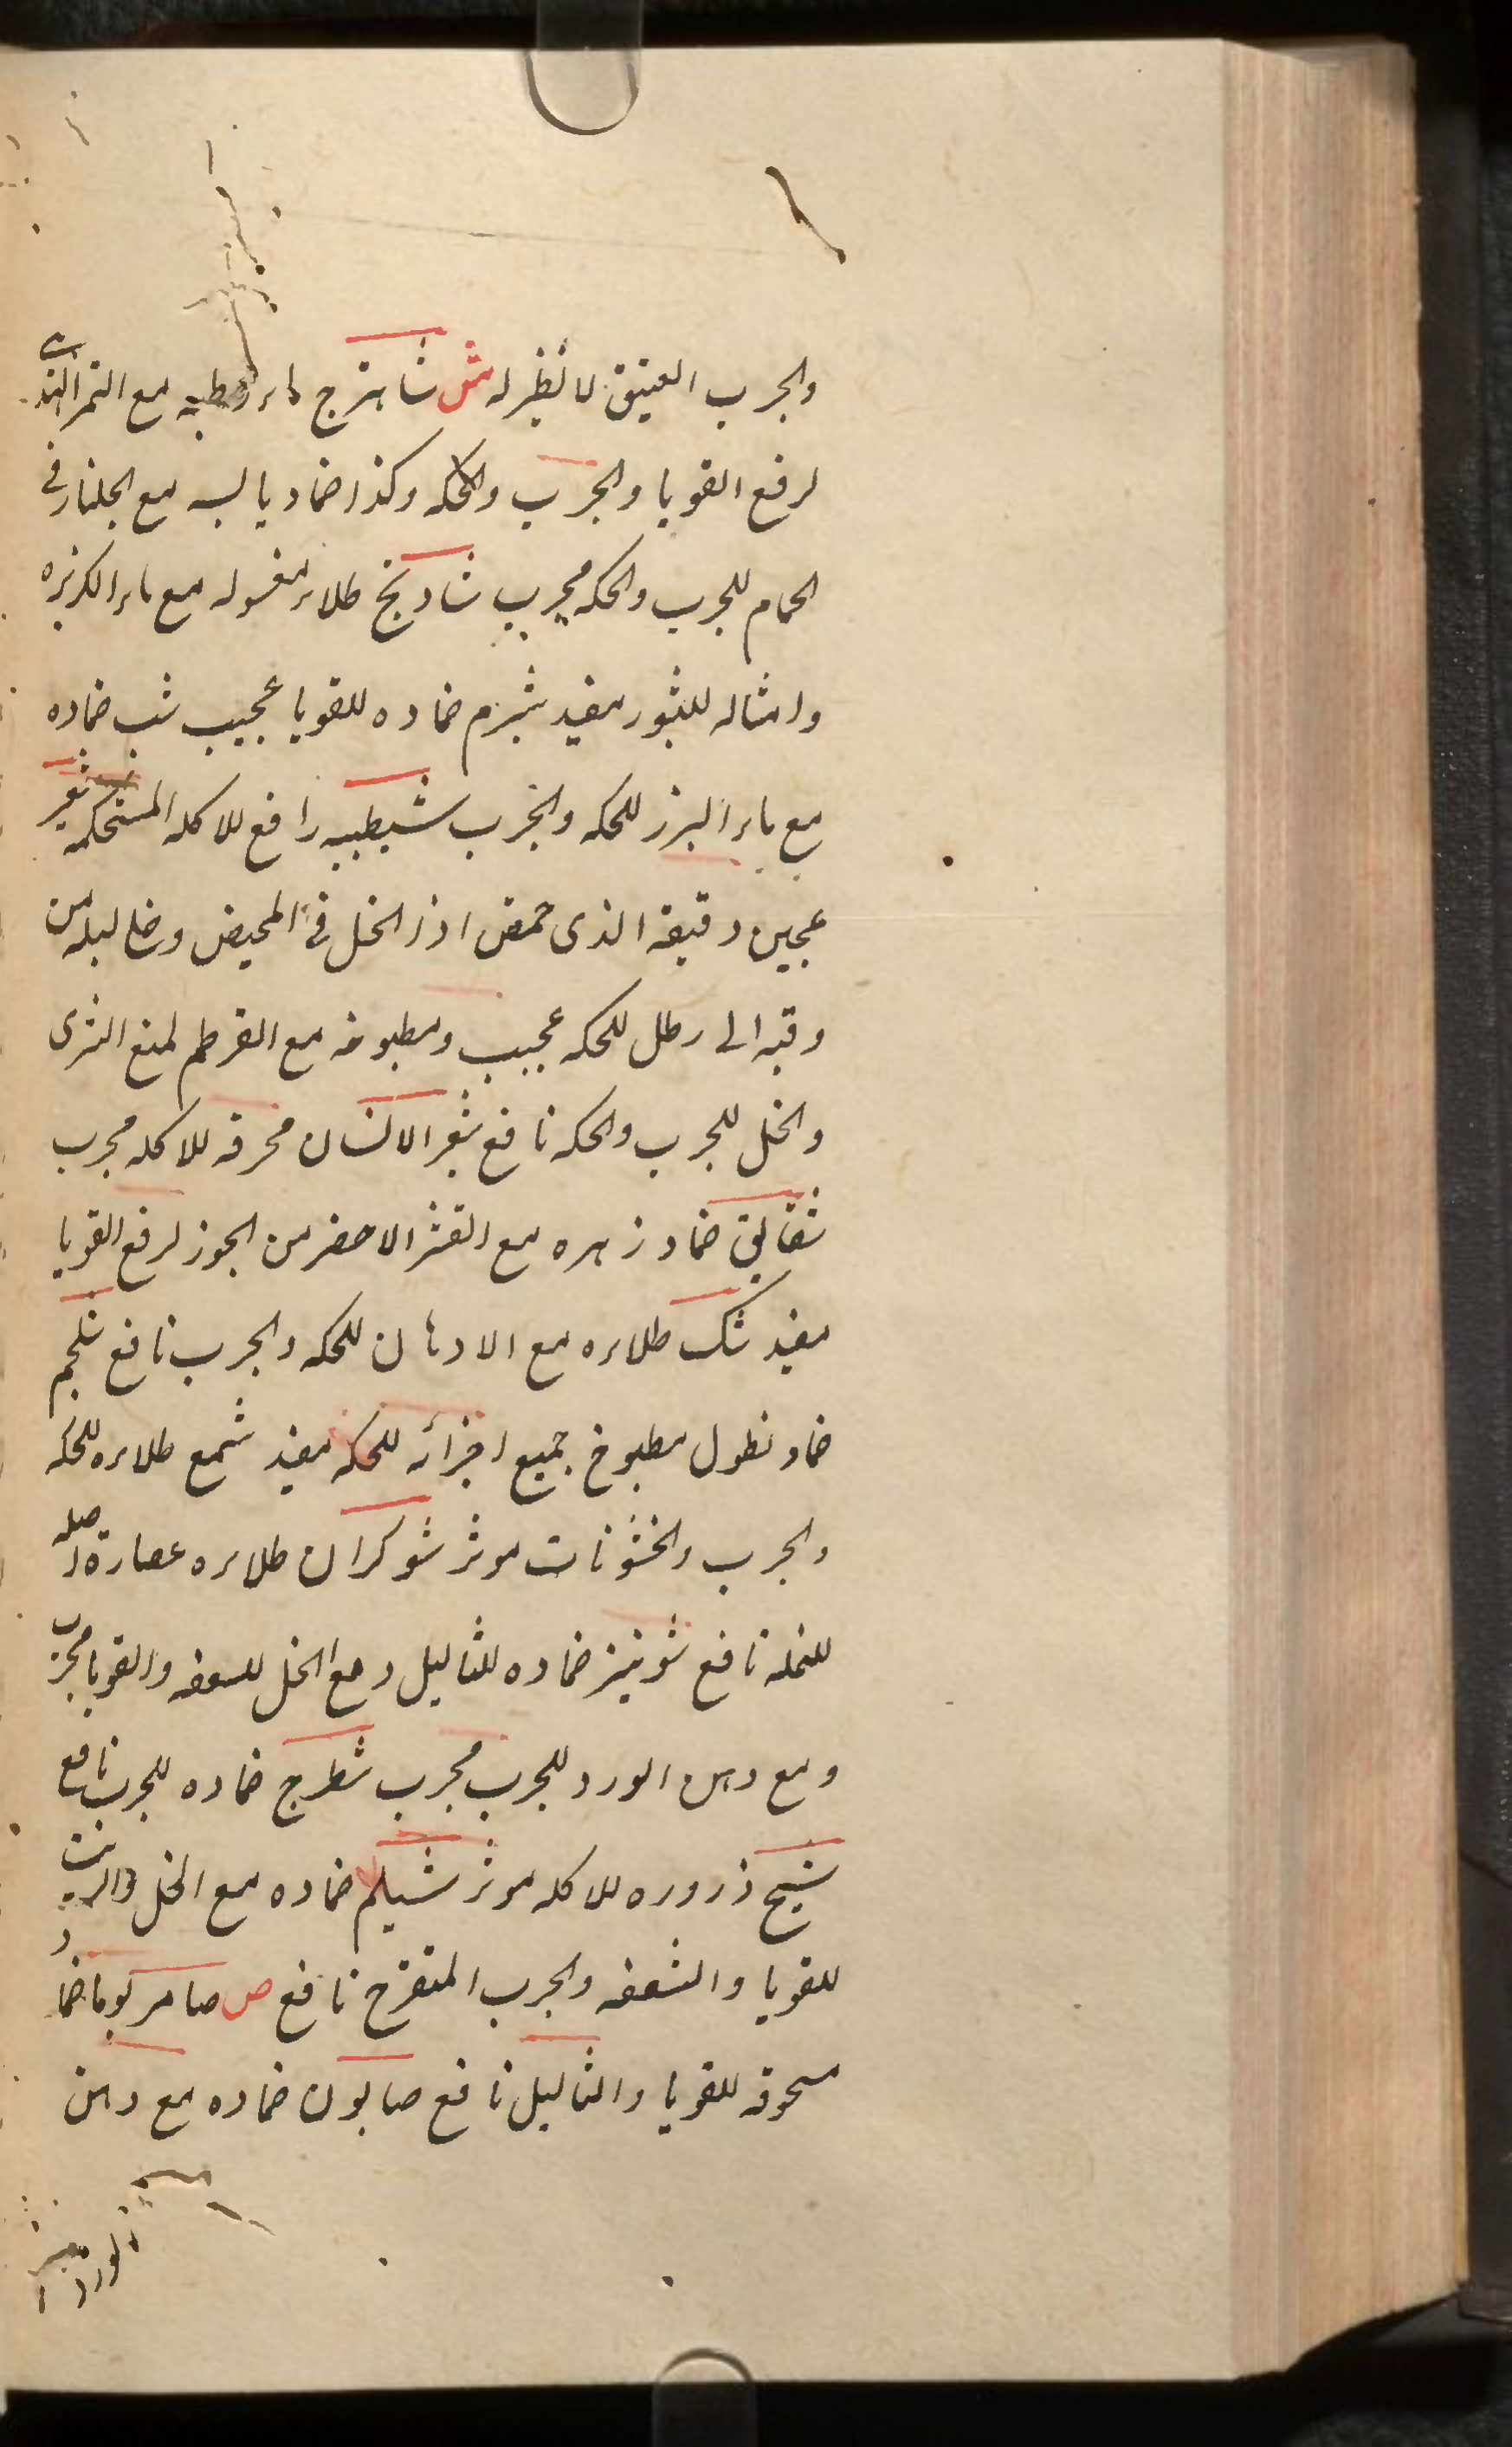 والجرب العتيق لا نظير له ش شاهترج ماء رطبه مع التمر الهندى
لرفع القوبا والجرب والحكه وكذا ضماد يابسه مع الجلنار فى
الحمام للجرب والحكه مجرب شادنج طلاء مغسوله مع ماء الكزبره
وامثاله للبثور مفيد شبرم ضماده للقوبا عجيب شب ضماده
مع ماء البزر للحكه والجرب شيطبيه رافع للاكله المستحكمه شعير
عجين دقيقه الذى حمض اذا انحل فى المخيض وضع ليله من
وقيه الى رطل للحكه عجيب ومطبوخه مع القرطم لمنع الشرى
والخل للجرب والحكه نافع شعر الانسان محرقه للاكله مجرب
شقايق ضماد زهره مع القشر الاخضر من الجوز لرفع القوبا
مفيد شك طلاءه مع الادهان للحكه والجرب نافع شلجم
ضماد نطول مطبوخ جميع اجزائه للحكه مفيد شمع طلاءه للحكه
والجرب والخشونات موثر شوكران طلاءه عصارة اصله
للنمله نافع شونيز ضماده للثاليل ومع الخل للسعفه والقوبا مجرب
ومع دهن الورد للجرب مجرب شطرج ضماده للجرب نافع
شيح ذروره للاكله موثر شيلم ضماده مع الخل والزيت
للقوبا والسعفه والجرب المتقرح نافع ص صامر يوما ضماد
مسحوقه للقوبا والثاليل نافع صابون ضماده مع دهن
الورد